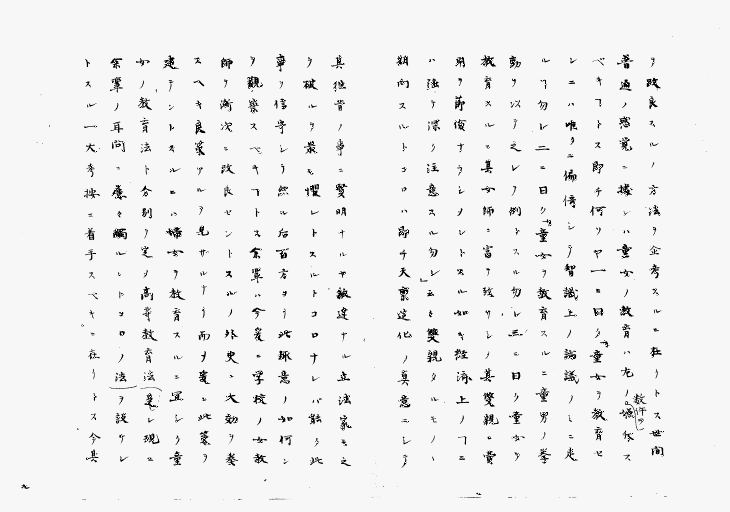 ヲ改良スルノ方法ヲ企考スルニ在リトス世間
普通ノ感覚ニ據レハ童女ノ教育ハ左ノ 依ス
ベキヿトス即チ何ソヤ一ニ曰ク童女ヲ教育セ
ンニハ唯タニ偏倚シテ智識上ノ論議ノミニ走
ルヿ勿レ二ニ曰ク童女ヲ教育スルニ童男ノ挙
動ヲ以テ之レヲ例トスル勿レ三ニ曰ク童女ヲ
教育スルニ其女師ニ富ヲ致サシメ其雙親ニ費
用ヲ節倹ナラシメントスル如キ経済上ノヿニ
ハ強テ深ク注意スル勿レ」ト云々雙親タルモノヽ
期向スルトコロハ即チ天禀造化ノ真意ニシテ
其担当ノ事ニ賢明ナルヤ敏達ナル立法家モ之
ヲ破ルヲ最モ懼レトスルトコロナレバ能ク此
事ヲ信守シテ然ル后百方ヨリ此脈意ノ如何ン
ヲ観察スベキヿトス余輩ハ今爰ニ学校ノ女教
師ヲ漸次ニ改良セントスルノ外更ニ大効ヲ奏
スヘキ良策アルヲ見サルナリ而ヲ爰ニ此策ヲ
建テントスルニハ婦女ヲ教育スルニ 童
女ノ教育法ト分別ヲ定メ高等教育法 レ現ニ
余輩ノ耳問ニ応々觸ルヽトコロノ法ヲ設ケン
トスル一大考按ニ着手スベキニ在リトス今其